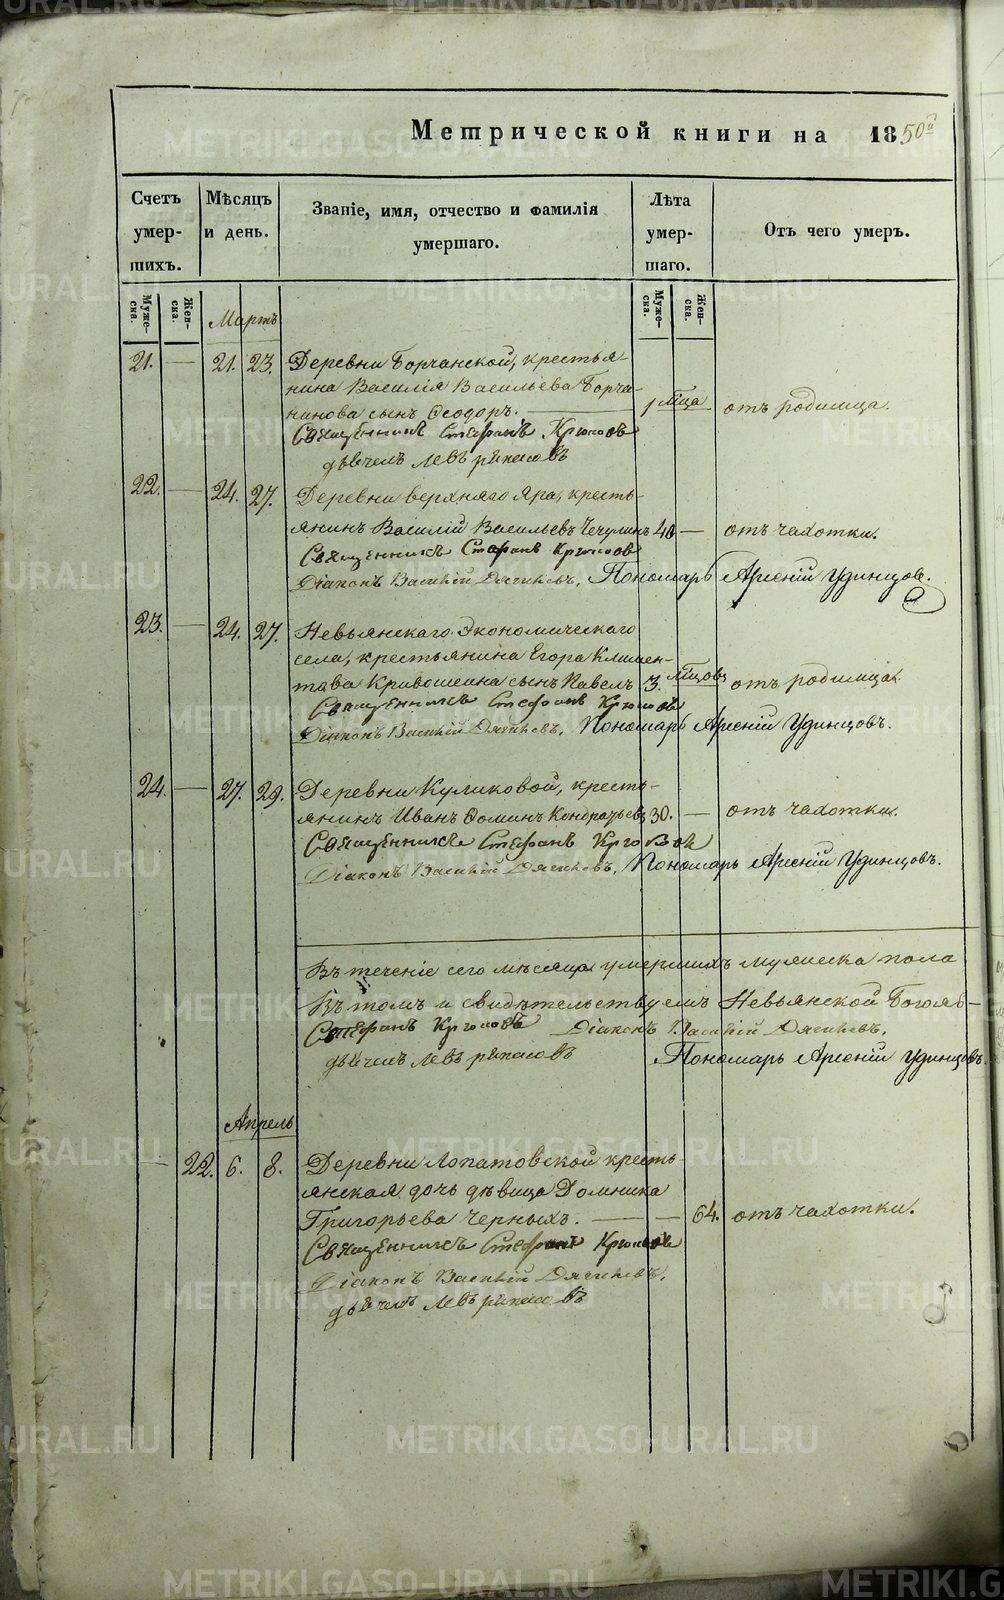 Метрической книги на 1850й
Счетъ умер-шихъ.
Мѣсяцъ и день.
Званіе, имя, отчество и фамилія умершаго.
Лѣта умер-шаго.
Отъ чего умеръ.
Муже-ска.
Жен-ска.
Мартъ
Муже-ска.
Жен-ска.
21. — 21. 23. Деревни Борчанской, крестья-
нина Василія Васильева Борча-
нинова сынъ Ѳеодоръ. — 1 мѣца отъ родимца.
Священникъ Стефанъ Крюковъ
дьячекъ Левъ
22. — 24. 27. Деревни верхняго Яра, кресть-
янинъ Василій Васильевъ Чечулинъ 40 — отъ чахотки.
Священникъ Стефанъ Крюковъ
Діаконъ Василій Дягилевъ, Пономарь Арсеній Удинцов.
23. — 24. 27. Невьянскаго Экономическаго
села, крестьянина Егора Климен-
това Кривошеина сынъ Павелъ 3. мѣцовъ отъ родимца.
Священникъ Стефанъ Крюковъ
Діаконъ Василій Дягилевъ, Пономарь Арсеній Удинцовъ.
24. — 27. 29. Деревни Куликовой, кресть-
янинъ Иванъ Ѳоминъ Кондратьевъ 30. — отъ чахотки.
Священникъ Стефанъ Крюковъ
Діаконъ Василій Дягилевъ, Пономарь Арсеній Удинцовъ.
Въ теченіе сего мѣсяца умершихъ мужеска пола
Въ томъ и свидѣтельствуемъ Невьянской Богояв-
Стефанъ Крюковъ Діаконъ Василій Дягилевъ,
дьячекъ Левъ
Пономарь Арсеній Удинцовъ.
Апрель
— 22. 6. 8. Деревни Лопатовской кресть-
янская дочь дѣвица Домника
Григорьева Черныхъ. — — 64. отъ чахотки.
Священникъ Стефанъ Крюковъ
Діаконъ Василій Дягилевъ,
дьячекъ Левъ
METRIKI.GASO-URAL.RU